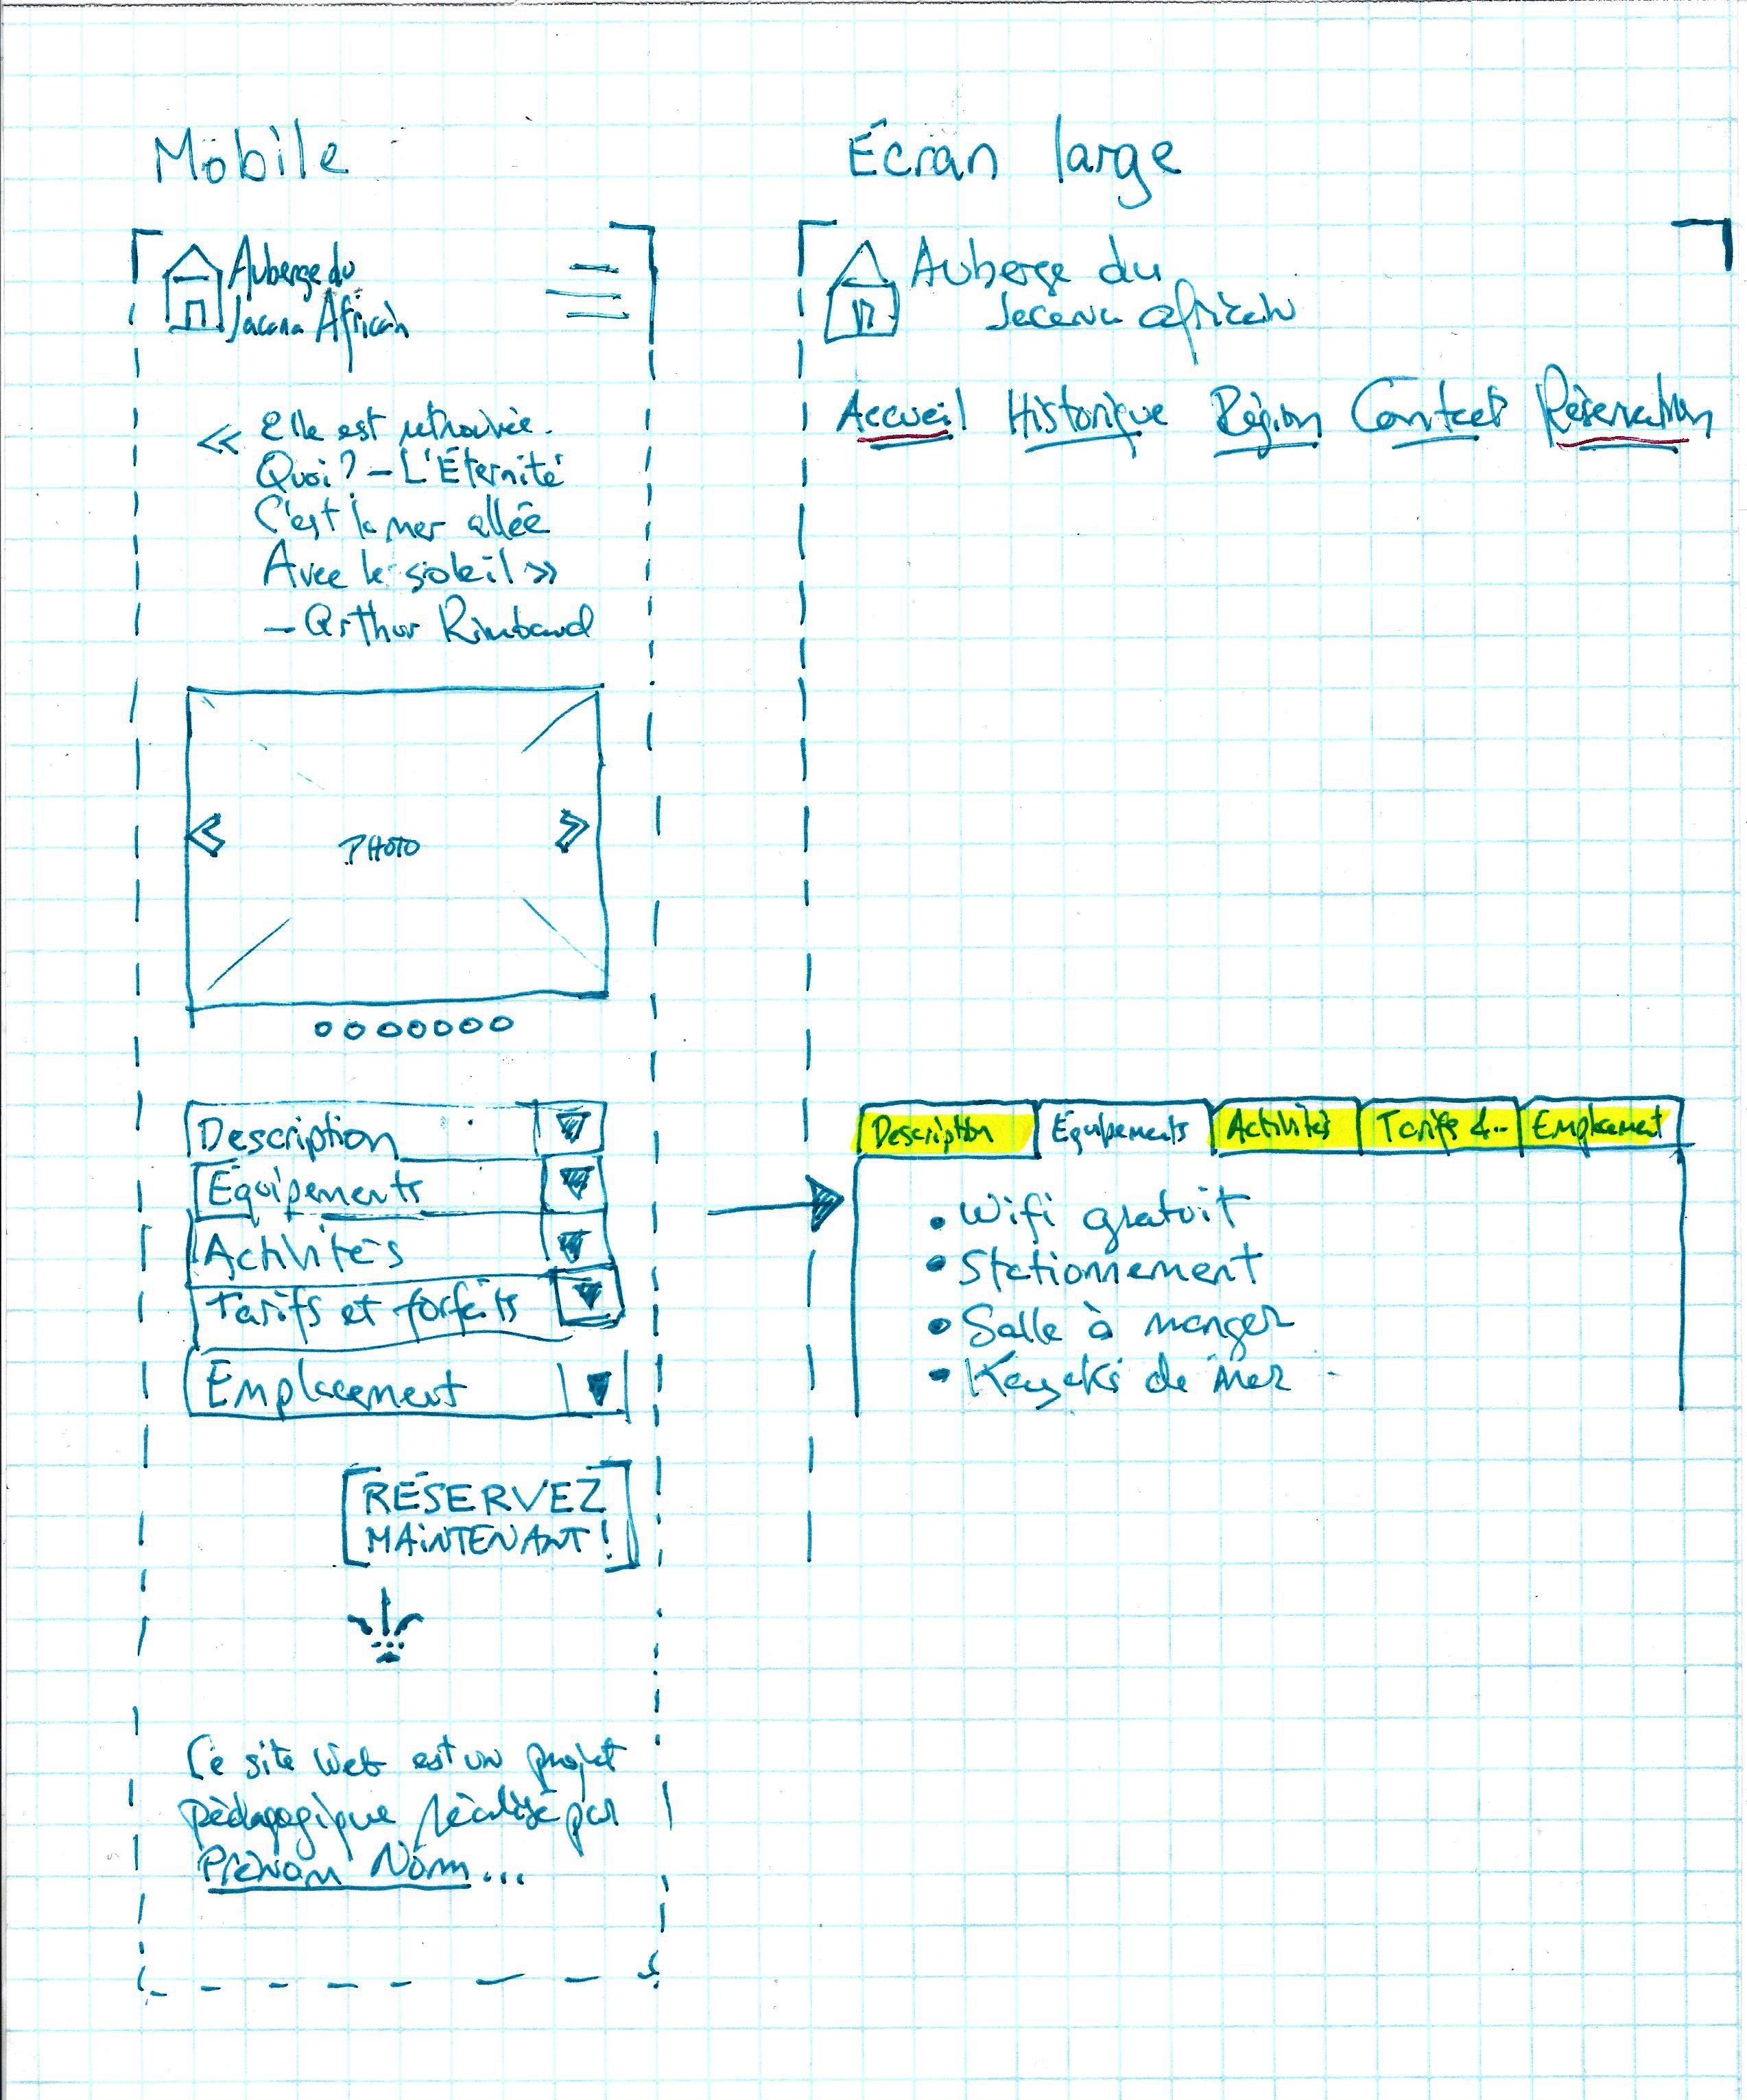 Mobile
Auberge du
Jacana Africain
« Elle est retrouvée.
Quoi? – L'Éternité
C'est la mer allée
Avec le soleil »
– Arthur Rimbaud
PHOTO
Description
Équipements
Activités
Tarifs et forfaits
Emplacement
RÉSERVEZ
MAINTENANT!
Ce site Web est un projet
pédagogique réalisé par
Prénom Nom...
Écran large
Auberge du
Jacana africain
Accueil Historique Région Contact Réservation
Description Équipements Activités Tarifs &... Emplacement
• Wifi gratuit
• Stationnement
• Salle à manger
• Kayaks de mer